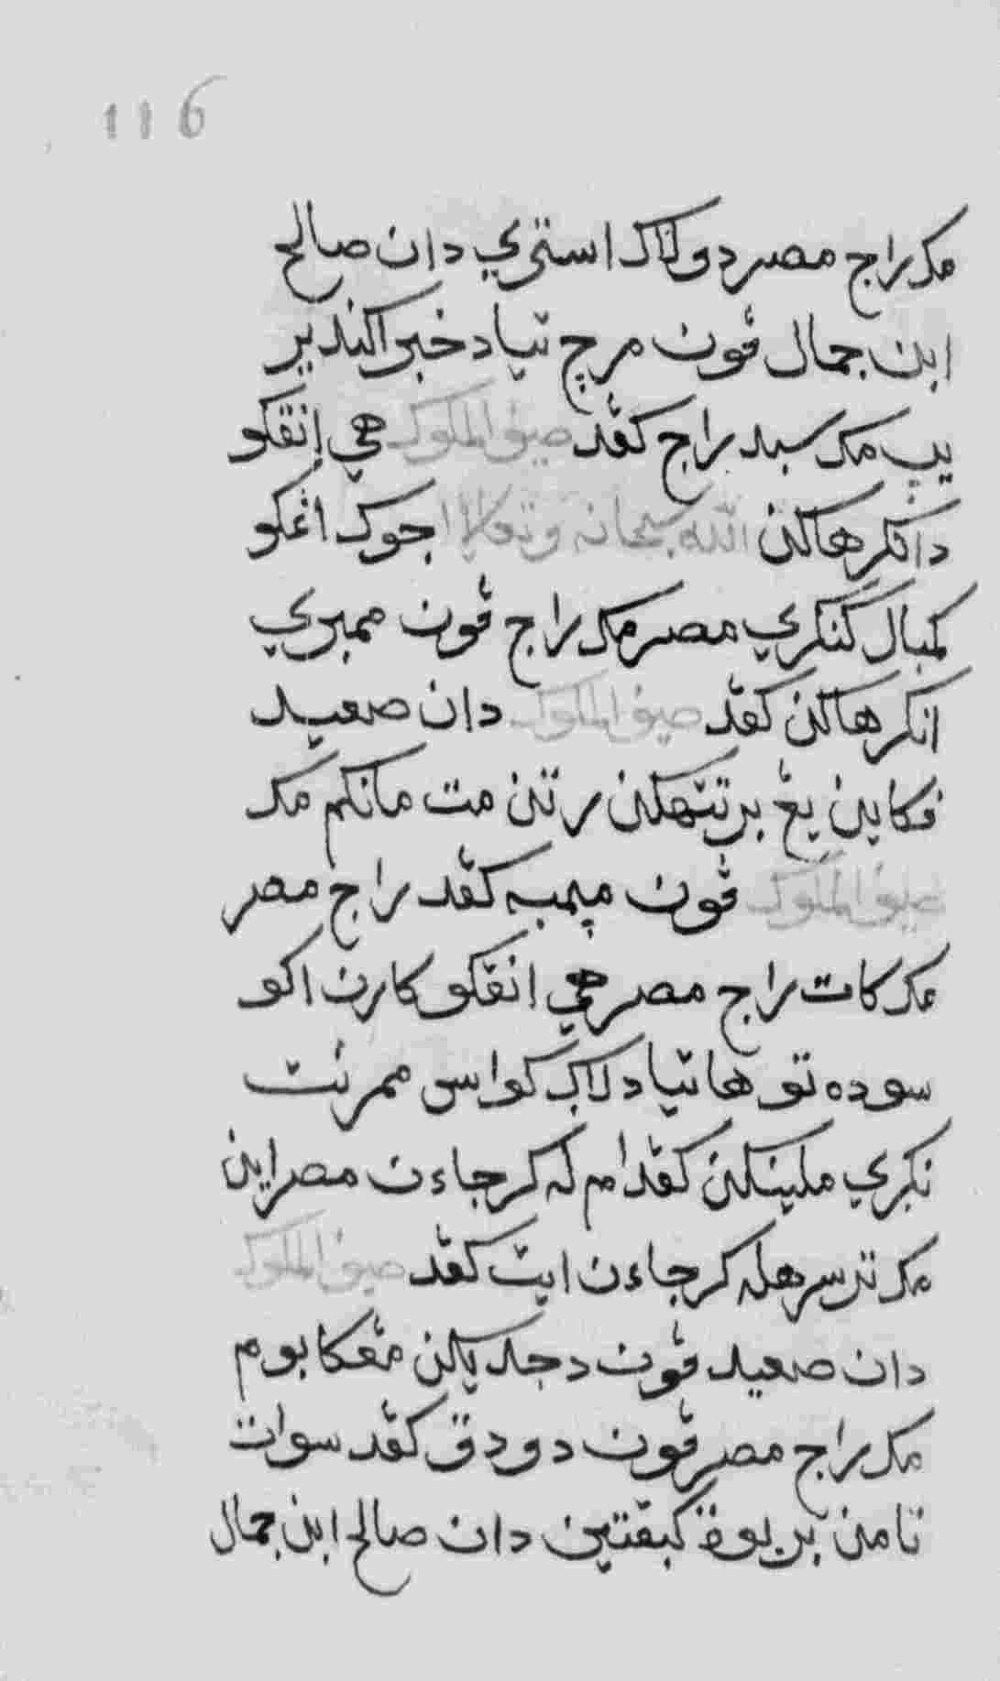 116
مک راج مصر دوک اک استري دان صالح
ابن جمال ڤون مرڄ تياد خبراکندير
يڽ مک سبد راج کڤد صيف الملوک هي انقکو
دانکرهاکن الله سبحانه وتعالى اجوک اڠکو
کمبال کنکري مصر مک راج ڤون ممبري
انکرهاکن کڤد صيف الملوک دان صعيد
ڤکاين يڠ برتتهکن رتن مت مانکم مک
صيف الملوک ڤون مڽمبه کڤد راج مصر
مک کات راج مصر هي انقکو کارن اکو
سوده توها تياد لاک کواس ممرنت
نکري ملينکن کڤدام له کرجاءن مصر اين
مک ترسرهله کرجاءن ايت کڤد صيف الملوک
دان صعيد ڤون دجديکن مڠکابوم
مک راج مصر ڤون دودق کڤد سوات
تامن بربوة کبقتين دان صالح ابن جمال